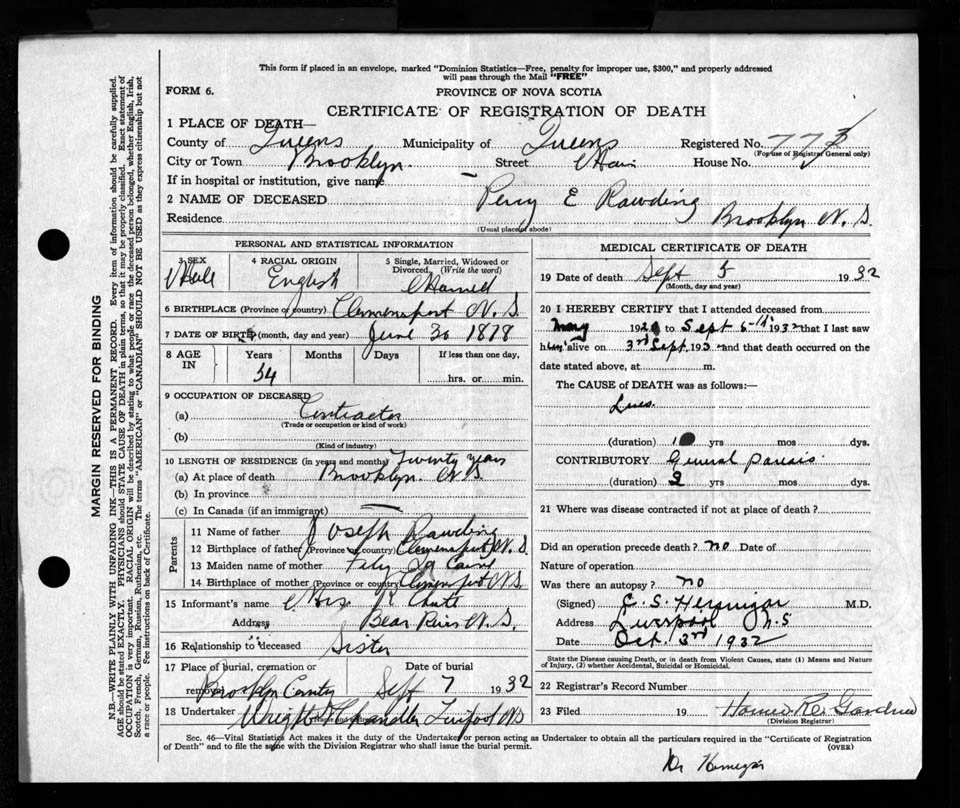 This form if placed in an envelope, marked "Dominion Statistics—Free, penalty for improper use, $300," and properly addressed
will pass through the Mail "FREE"
FORM 6.
PROVINCE OF NOVA SCOTIA
CERTIFICATE OF REGISTRATION OF DEATH
1 PLACE OF DEATH—
County of Queens Municipality of Queens Registered No. 77
(For use of Registrar General only)
City or Town Brooklyn. Street Main House No.
If in hospital or institution, give name —
2 NAME OF DECEASED Percy E Rawding
Residence Brooklyn N. S.
(Usual place of abode)
PERSONAL AND STATISTICAL INFORMATION
3 SEX Male
4 RACIAL ORIGIN English
5 Single, Married, Widowed or Divorced, (Write the word) Married
6 BIRTHPLACE (Province or country) Clementsport N. S.
7 DATE OF BIRTH (month, day and year) June 30 1878
8 AGE IN Years 54 Months Days If less than one day, hrs. or min.
9 OCCUPATION OF DECEASED
(a) Contractor
(Trade or occupation or kind of work)
(b)
(Kind of industry)
10 LENGTH OF RESIDENCE (in years and months) Twenty years
(a) At place of death Brooklyn. N. S.
(b) In province
(c) In Canada (if an immigrant) —
Parents
11 Name of father Joseph Rawding
12 Birthplace of father (Province or country) Clementsport N. S.
13 Maiden name of mother
14 Birthplace of mother (Province or country) Clementsport N.S.
15 Informant's name Mrs R Chute
Address Bear River N. S.
16 Relationship to deceased Sister
17 Place of burial, cremation or removal Brooklyn
Date of burial Sept 7 1932
18 Undertaker Wright Chandler Liverpool NS
MEDICAL CERTIFICATE OF DEATH
19 Date of death Sept 5 1932
(Month, day and year)
20 I HEREBY CERTIFY that I attended deceased from
May 192 to Sept 1932 that I last saw
him alive on 3rd Sept. 1932 and that death occurred on the
date stated above, at m.
The CAUSE of DEATH was as follows:—
Lues.
(duration) yrs mos dys.
CONTRIBUTORY General paresis.
(duration) 2 yrs mos dys.
21 Where was disease contracted if not at place of death?
Did an operation precede death? no Date of
Nature of operation
Was there an autopsy? no
(Signed) M.D.
Address Liverpool N.S
Date Oct. 3rd 1932
State the Disease causing Death, or in death from Violent Causes, state (1) Means and Nature
of Injury, (2) whether Accidental, Suicidal or Homicidal.
22 Registrar's Record Number
23 Filed 19
(Division Registrar)
Sec. 46—Vital Statistics Act makes it the duty of the Undertaker or person acting as Undertaker to obtain all the particulars required in the "Certificate of Registration
of Death" and to file the same with the Division Registrar who shall issue the burial permit.
(OVER)
Dr
MARGIN RESERVED FOR BINDING
N.B.—WRITE PLAINLY WITH UNFADING INK—THIS IS A PERMANENT RECORD. Every item of information should be carefully supplied.
AGE should be stated EXACTLY. PHYSICIANS should STATE CAUSE OF DEATH in plain terms, so that it may be properly classified. Exact statement of
OCCUPATION is very important. RACIAL ORIGIN will be described by stating to what people or race the deceased person belonged, whether English, Irish,
Scotch, French, German, Russian, Ruthenian, etc. The terms "AMERICAN" or "CANADIAN" SHOULD NOT BE USED as they express citizenship but not
a race or people. Fee instructions on back of Certificate.